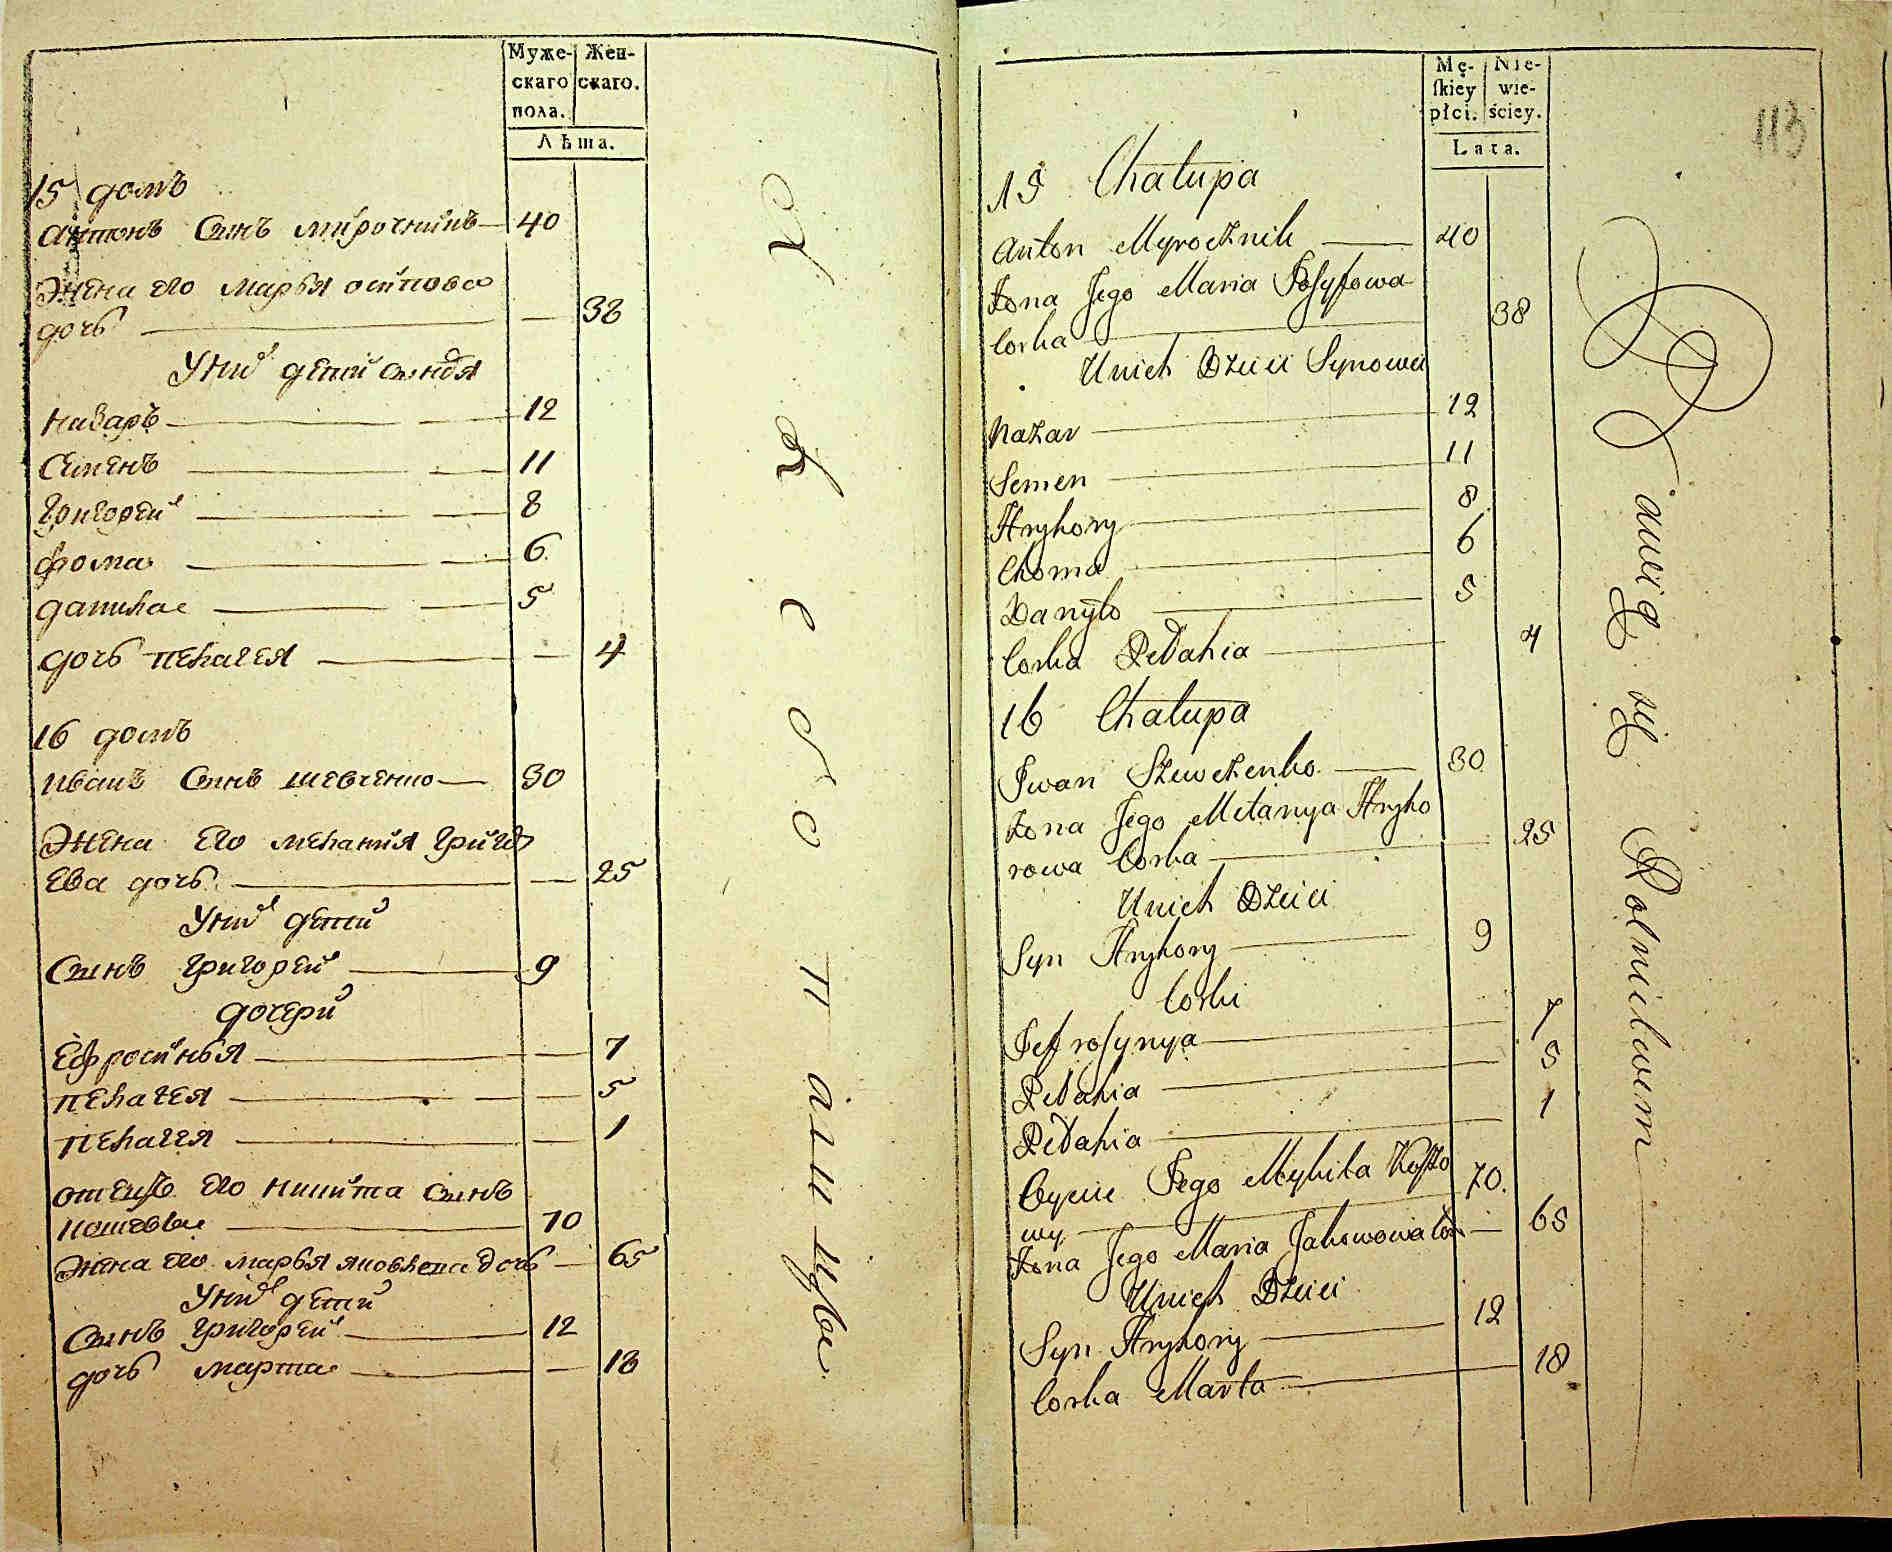 Муже-
скаго
пола.
Жен-
скаго.
Лѣта.
15 домъ
Антонъ Сынъ мирочникъ 40
Жена его марья осипова
дочь 38
У них детей сыновя
Назаръ 12
Семенъ 11
Григорей 8
фома 6
данила 5
дочь пелагея 4
16 домъ
иванъ Сынъ шевченко 30
Жена его мелания григор
ева дочь 25
У них детей
Сынъ григорей 9
дочери
Ефросинья 7
пелагея 5
пелагея 1
отецъ его никита сынъ
костевы 70
Жена его марья яковлева дочь 65
У них детей
Сынъ григорей 12
дочь марта 18
Mę-
ſkiey
płci.
Nie-
wie-
ściey.
Lata.
113
15 Chałupa
Anton Myrocznik 40
Żona Jego Maria Josyfowa
Corka 38
U nich Dzieci Synowie
Nazar 12
Semen 11
Hryhory 8
Choma 6
Danyło 5
Corka Pełahia 4
16 Chałupa
Iwan Szewczenko 30
Żona Jego Mełanya Hryho
rowa Corka 25
U nich Dzieci
Syn Hryhory 9
Corki
Jefrosynya 7
Pełahia 5
Pełahia 1
Oyciec Jego Mykita Kosto
wy 70.
Żona Jego Maria Jakowowa Cor 65
U nich Dzieci
Syn Hryhory 12
Corka Marta 18
Bawią się Rolnictwem